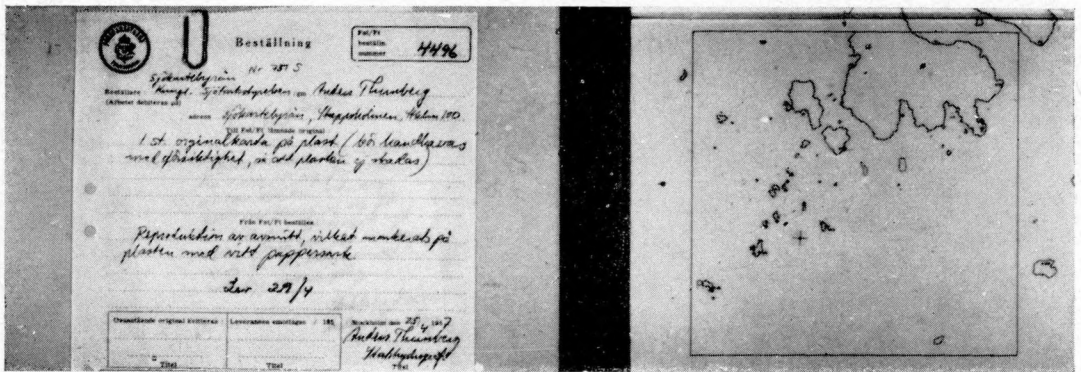 Beställning
Fst/Ft
beställn
nummer 4496
Sjökartebyrån Nr 787 S
Beställare Kungl. Sjöfartsstyrelsen gm Anders Thunberg
(Arbetet debiteras på)
adress Sjökartebyrån, Skeppsholmen, Sthlm 100
Till Fst/Ft lämnade original
1 st. orginalkarta på plast (bör handhavas
med försiktighet, så att plasten ej skadas)
Från Fst/Ft beställes
Reproduktion av avsnitt, vilket markerats på
plasten med vitt papper
Lev 29/4
Omstående original kvitteras
Leveransen emottagen / 195
Stockholm den 25/4 1957
Anders Thunberg
Statshydrograf
Titel
Titel
Titel